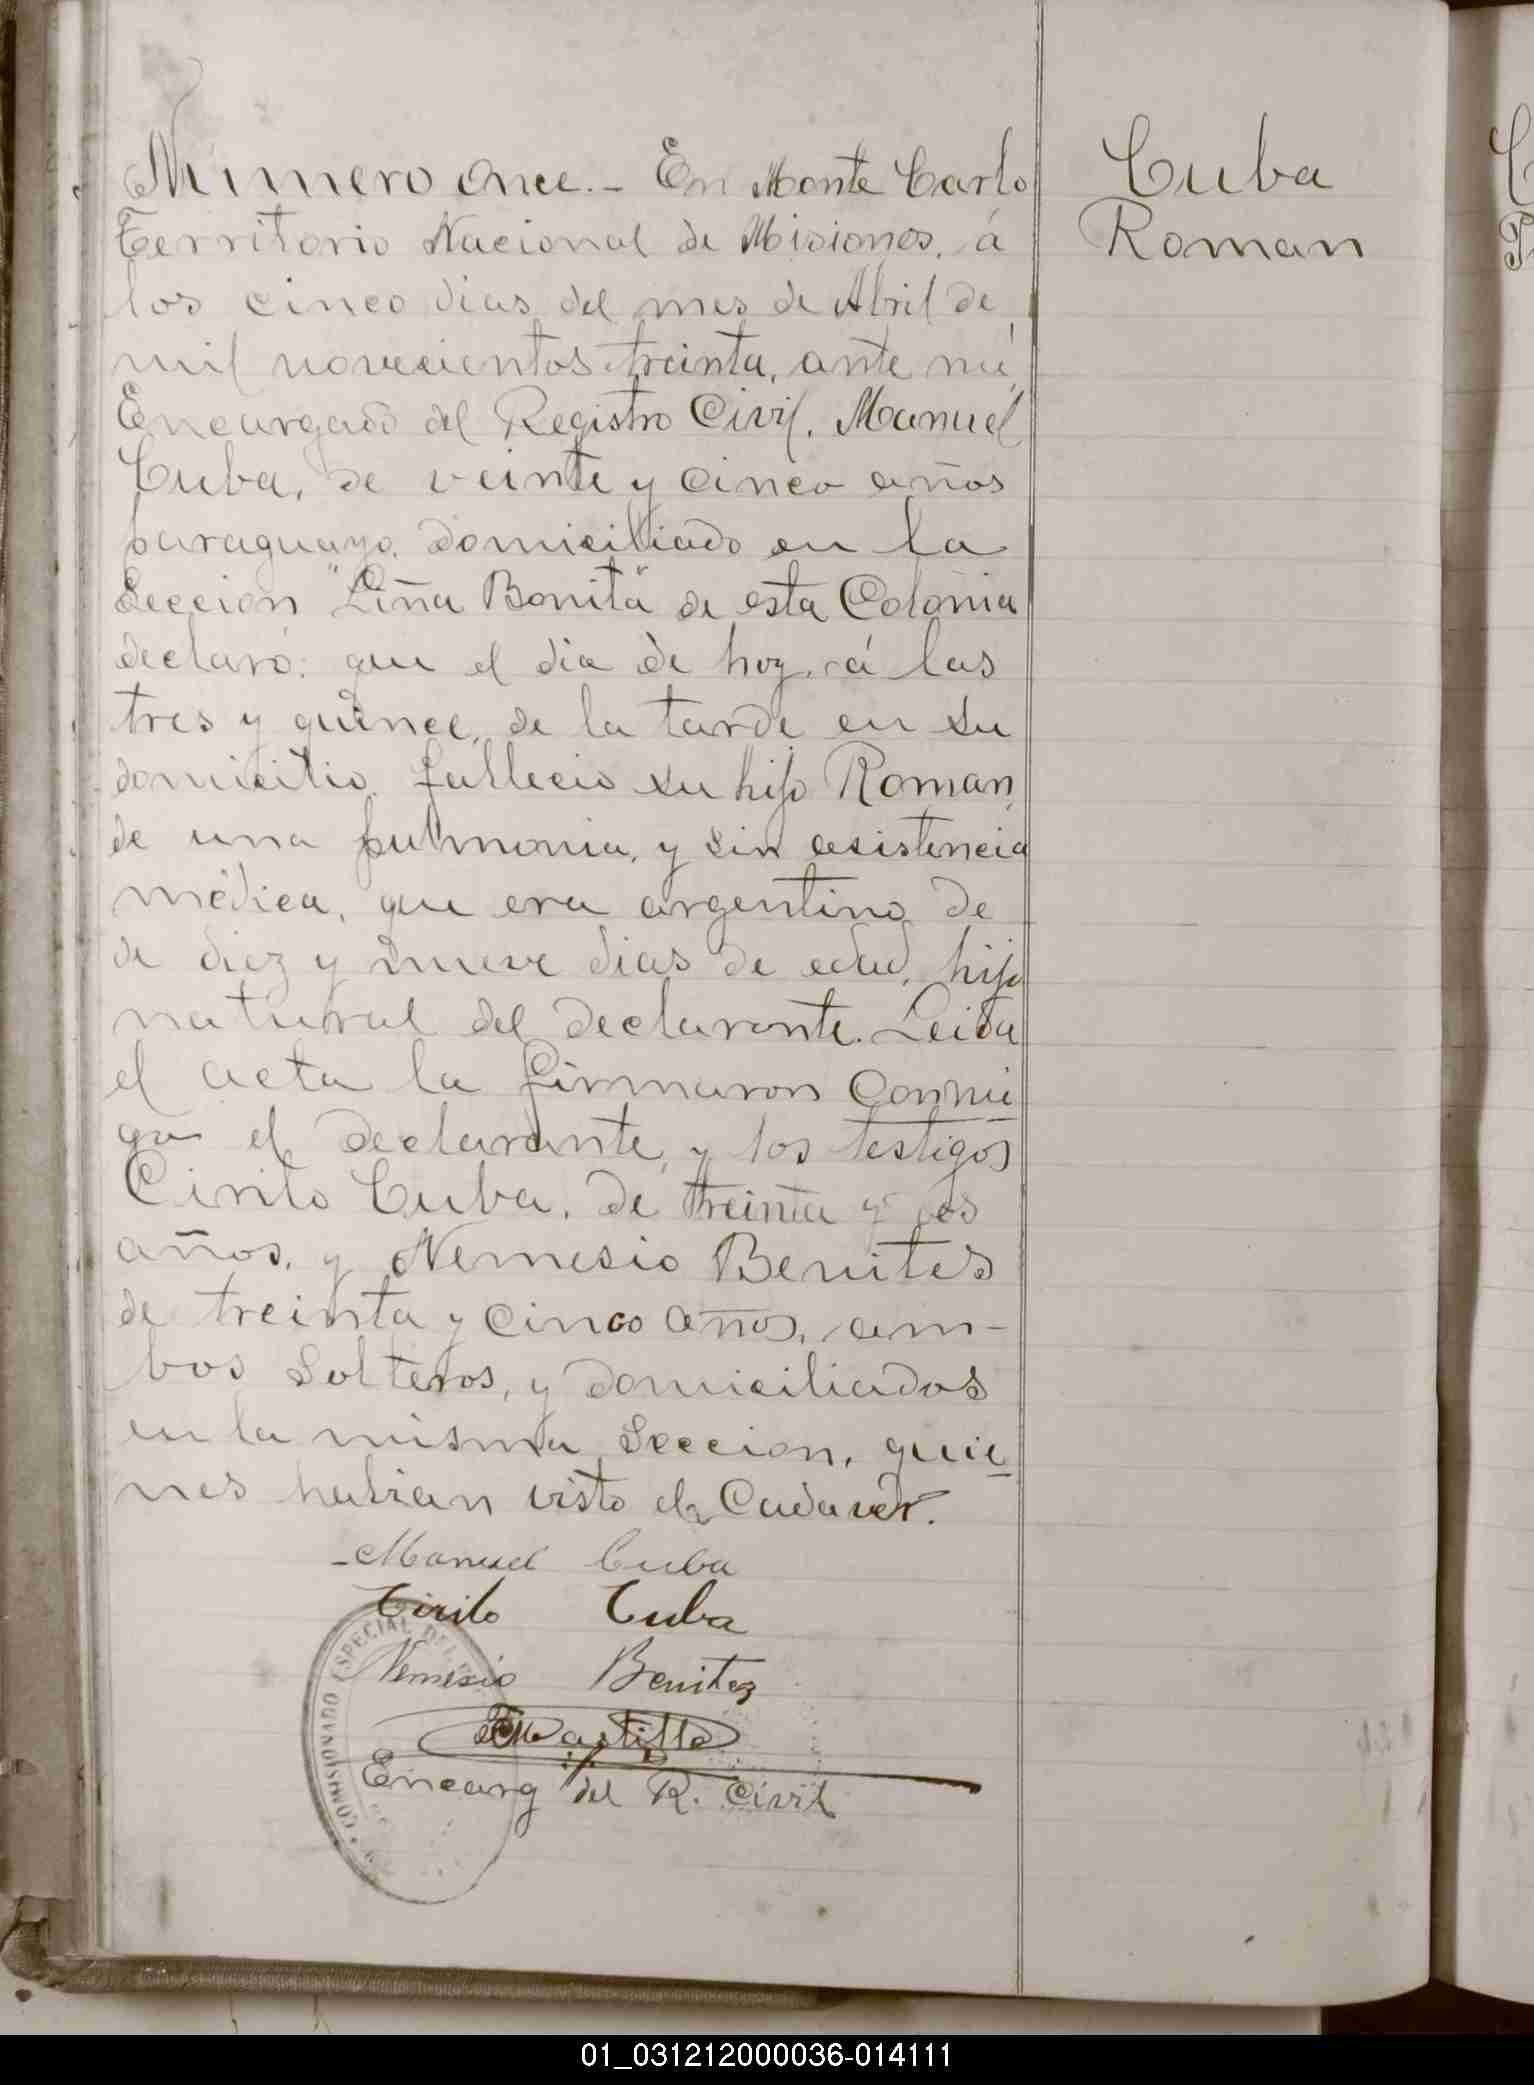 Número once.- En Monte Carlo
Territorio Nacional de Misiones, á
los cinco dias del mes de Abril de
mil novecientos treinta, ante mi,
Encargado del Registro Civil, Manuel
Cuba, de veinte y cinco años
paraguayo, domiciliado en la
Seccion "Liña Bonita" de esta Colonia
declaró: que el dia de hoy, á las
tres y quince, de la tarde en su
domicilio, fallecio su hijo Roman,
de una pulmonia, y sin asistencia
médica, que era argentino de
de diez y nueve dias de edad, hijo
natural del declarante. Leida
el acta la firmaron conmi
go el declarante, y los testigos
Cirilo Cuba, de treinta y
años, y Nemesio Benites
de treinta y cinco años, am-
bos solteros, y domiciliados
en la misma Seccion, quie
nes habian visto el Cadaver.
-Manuel Cuba
Cirilo Cuba
Nemesio Benitez
Encarg del R. Civil
Cuba
Roman
COMISIONADO ESPECIAL DEL
01_031212000036-014111